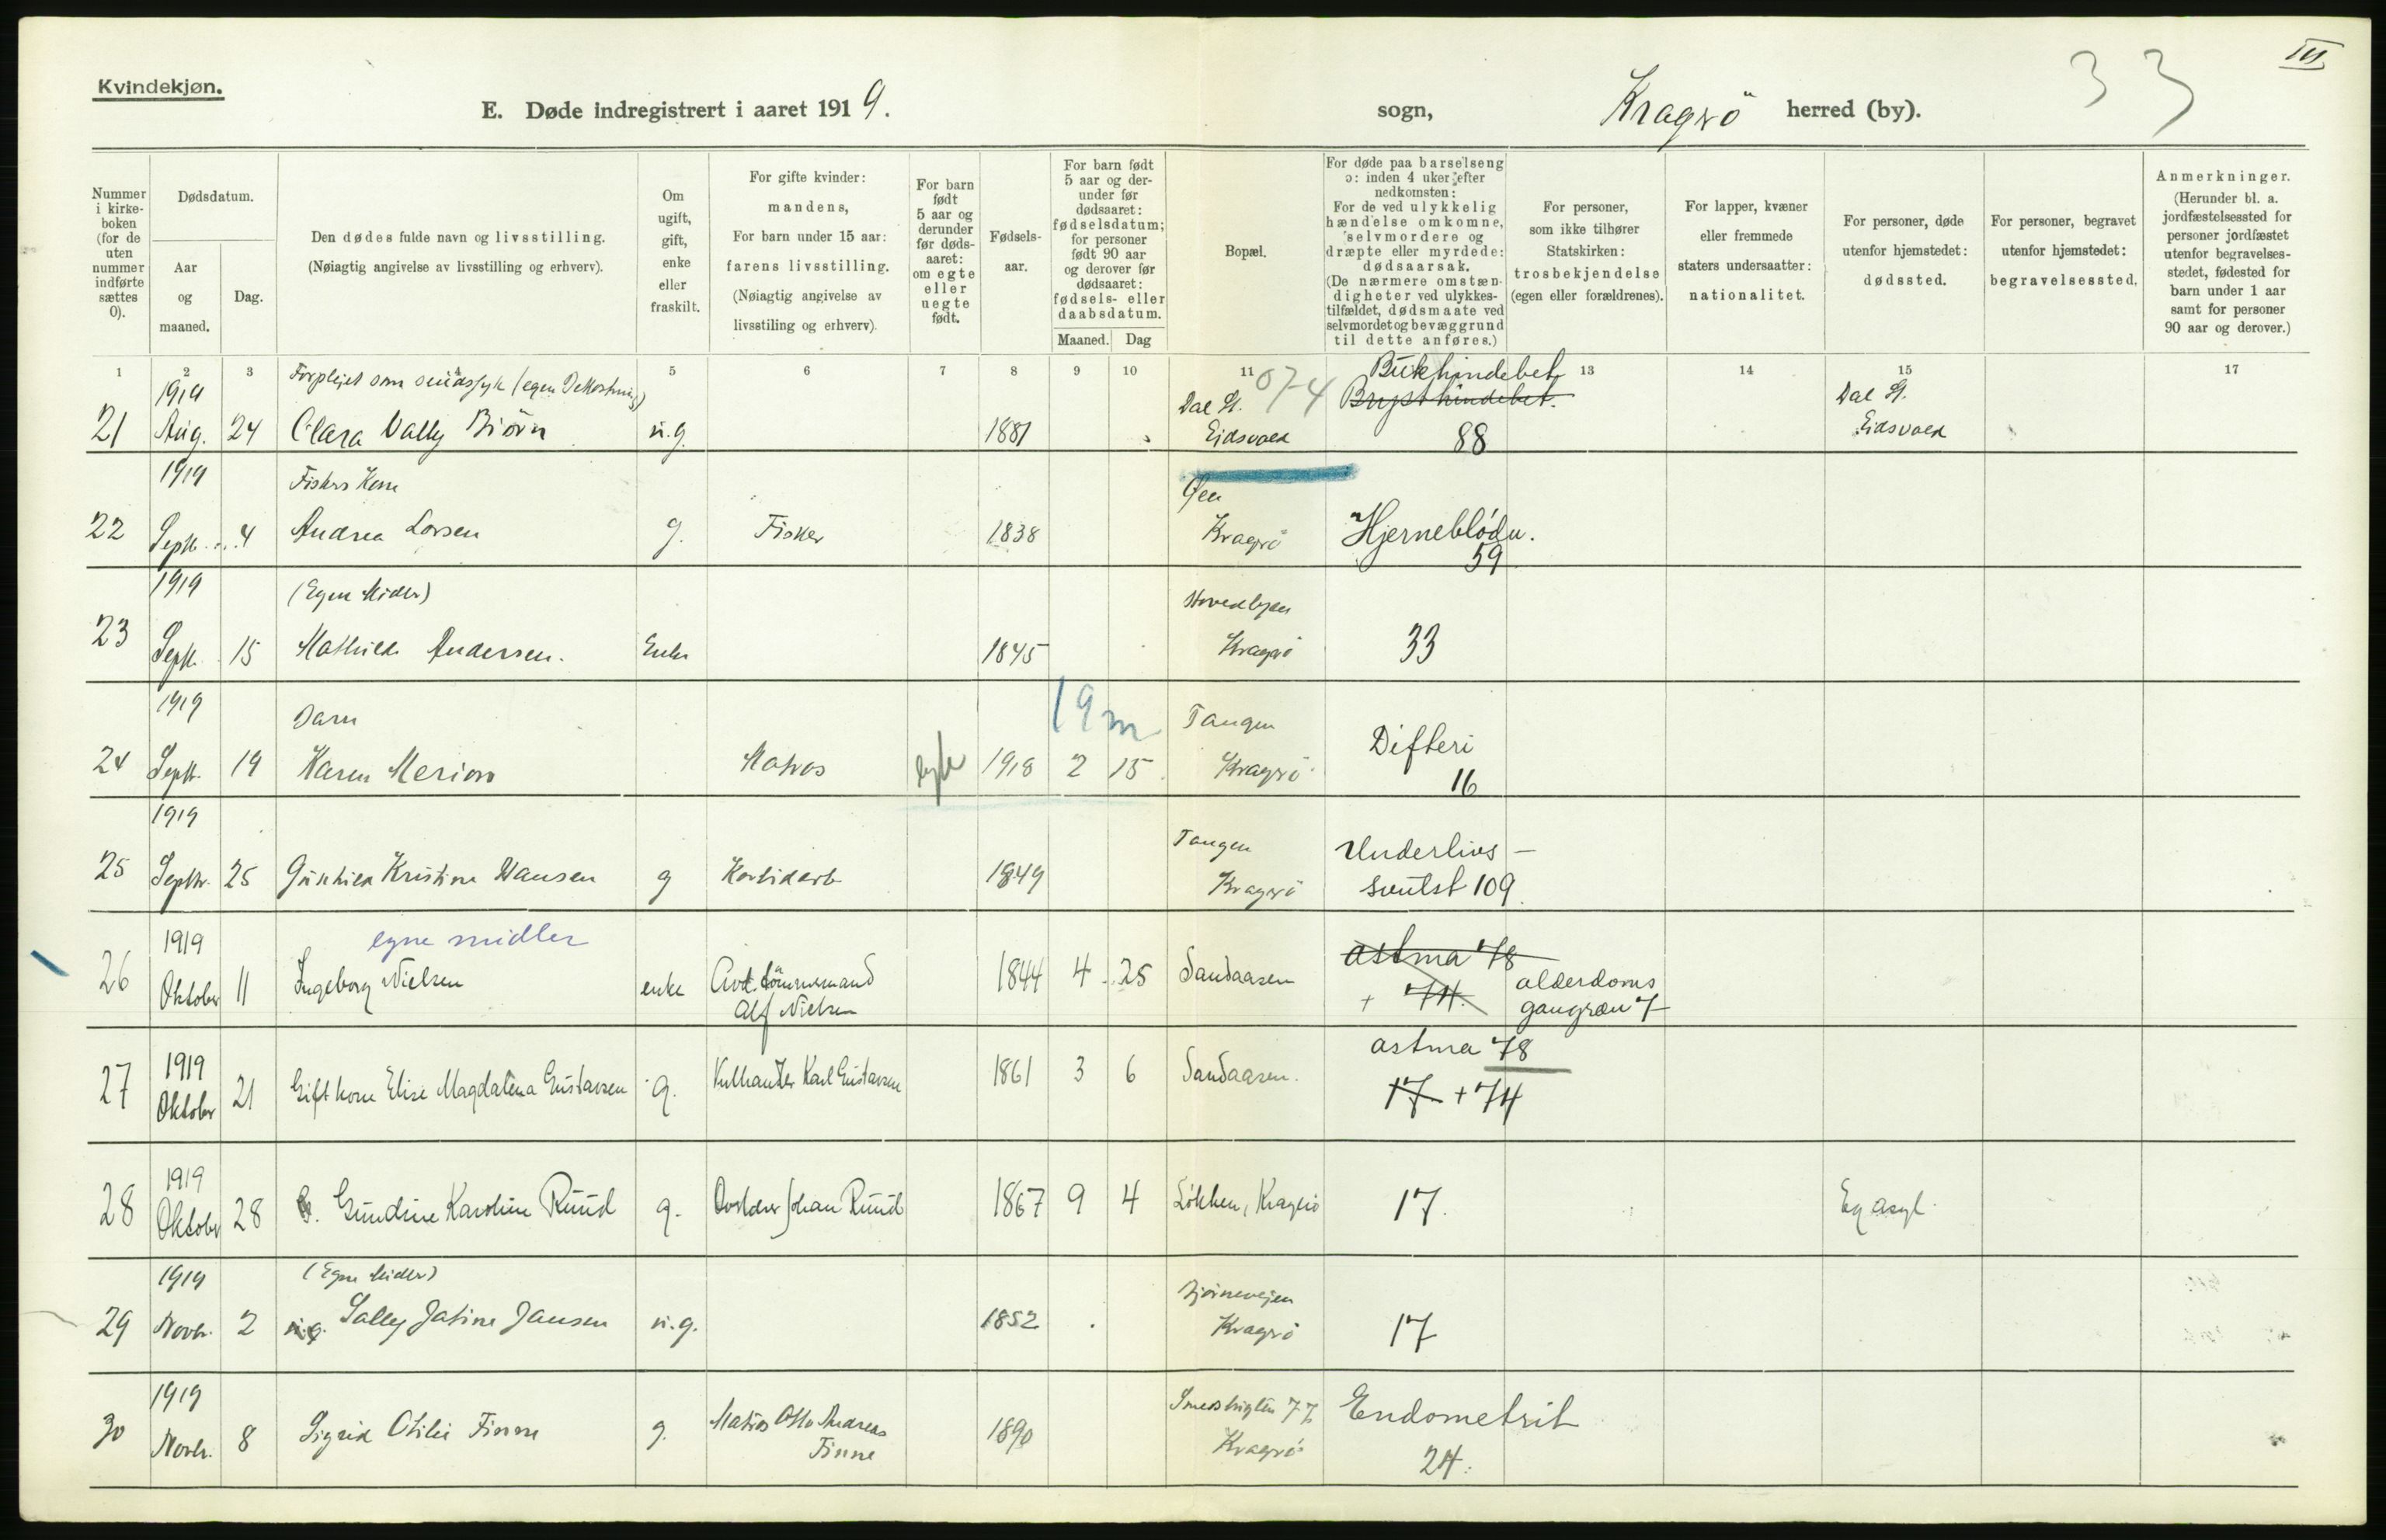 Kvindekjøn.
E. Døde indregistrert i aaret 1919.
sogn,
Kragerö herred (by).
33
III
Nummer i kirke-boken (for de uten nummer indførte sættes 0).
Dødsdatum.
Aar og maaned.
Dag.
Den dødes fulde navn og livsstilling.
(Nøiagtig angivelse av livsstilling og erhverv).
Om ugift, gift, enke eller fraskilt.
For gifte kvinder: mandens,
For barn under 15 aar: farens livsstilling.
(Nøiagtig angivelse av livsstiling og erhverv).
For barn født 5 aar og derunder før døds-aaret: om egte eller uegte født.
Fødsels-aar.
For barn født 5 aar og der-under før dødsaaret: fødselsdatum; for personer født 90 aar og derover før dødsaaret: fødsels- eller daabsdatum.
Maaned.
Dag
Bopæl.
For døde paa barselseng ɔ: inden 4 uker efter nedkomsten:
For de ved ulykkelig hændelse omkomne, selvmordere og dræpte eller myrdede: dødsaarsak.
(De nærmere omstæn-digheter ved ulykkes-tilfældet, dødsmaate ved selvmordet og bevæggrund til dette anføres.)
For personer, som ikke tilhører Statskirken: trosbekjendelse (egen eller forældrenes).
For lapper, kvæner eller fremmede staters undersaatter: nationalitet.
For personer, døde utenfor hjemstedet: dødssted.
For personer, begravet utenfor hjemstedet: begravelsessted.
Anmerkninger.
(Herunder bl. a. jordfæstelsessted for personer jordfæstet utenfor begravelses-stedet, fødested for barn under 1 aar samt for personer 90 aar og derover.)
1 2 3 5 6 7 8 9 10 11 13 14 15 17
1919 Forplejet som sindssyk (egen Bekostning) 074 Bukhindebet. Dal St.
21 Aug. 24 Clara Vally Biörn u.g. 1881 Dal St. Eidsvold Brysthindebet. 88 Eidsvold
1919 Fiskers Kone Øen
22 Septb. 4 Andrea Larsen g. Fisker 1838 Kragerö Hjerneblödn. 59
1919 (Egne Midler) Hovedbyen
23 Septb. 15 Mathilde Andersen. Enke 1845 Kragerö 33
1919 Barn 19 m Tangen Difteri
24 Septb. 19 Karen Merion Matros egte 1918 2 15 Kragerö 16
1919 Tangen Underlivs-
25 Septbr. 25 Gunhild Kristine Hansen g 1849 Kragerö svulst 109
1919 egne midler astma 78
26 Oktober 11 Ingeborg Nielsen enke Avd. tömmermand Alf Nielsen 1844 4 25 Sandaasen + 74. alderdoms gangræn 7
1919 astma 78
27 Oktober 21 Gift kone Elise Magdalena Gustavsen g. Kulhandler Karl Gustavsen 1861 3 6 Sandaasen. 17 + 74
1919
28 Oktober 28 G. Gundine Karoline Ruud g. Johan Ruud 1867 9 4 Løkken, Kragerö 17. Eg asyl.
1919 (Egne Midler) Bjørnevejen
29 Novbr. 2 u.g. Sally Jatine Jansen u.g. 1852 Kragerö 17
1919 Endometrit
30 Novbr. 8 Sigrid Otilie Finne g. Matros Otto Andreas Finne 1890 Kragerö 24.